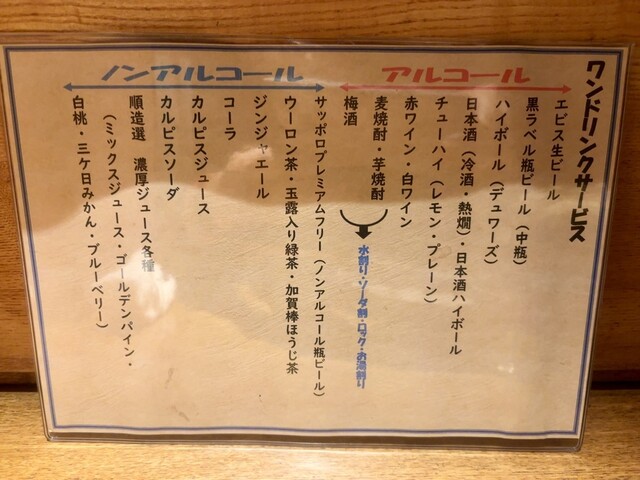 ワンドリンクサービス
アルコール
エビス生ビール
黒ラベル瓶ビール（中瓶）
ハイボール（デュワーズ）
日本酒（冷酒・熱燗）・日本酒ハイボール
チューハイ（レモン・プレーン）
赤ワイン・白ワイン
麦焼酎・芋焼酎
梅酒
水割り・ソーダ割・ロック・お湯割り
ノンアルコール
サッポロプレミアムフリー（ノンアルコール瓶ビール）
ウーロン茶・玉露入り緑茶・加賀棒ほうじ茶
ジンジャエール
コーラ
カルピスジュース
カルピスソーダ
順造選　濃厚ジュース各種
（ミックスジュース・ゴールデンパイン・
白桃・三ケ日みかん・ブルーベリー）